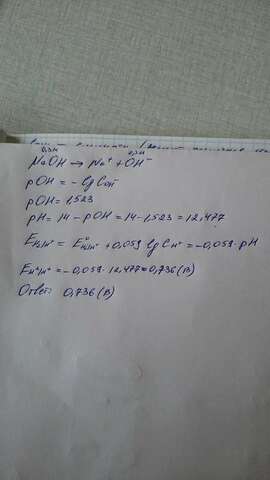 0,3Н 0,3Н
NaOH → Na⁺ + OH⁻
pOH = - lg C_OH⁻
pOH = 1,523
pH = 14 - pOH = 14 - 1,523 = 12,477
E_H₂/H⁺ = E⁰_H₂/H⁺ + 0,059 lg C_H⁺ = -0,059 · pH
= -0,059 · 12,477 = 0,736 (В)
Ответ: 0,736 (В)